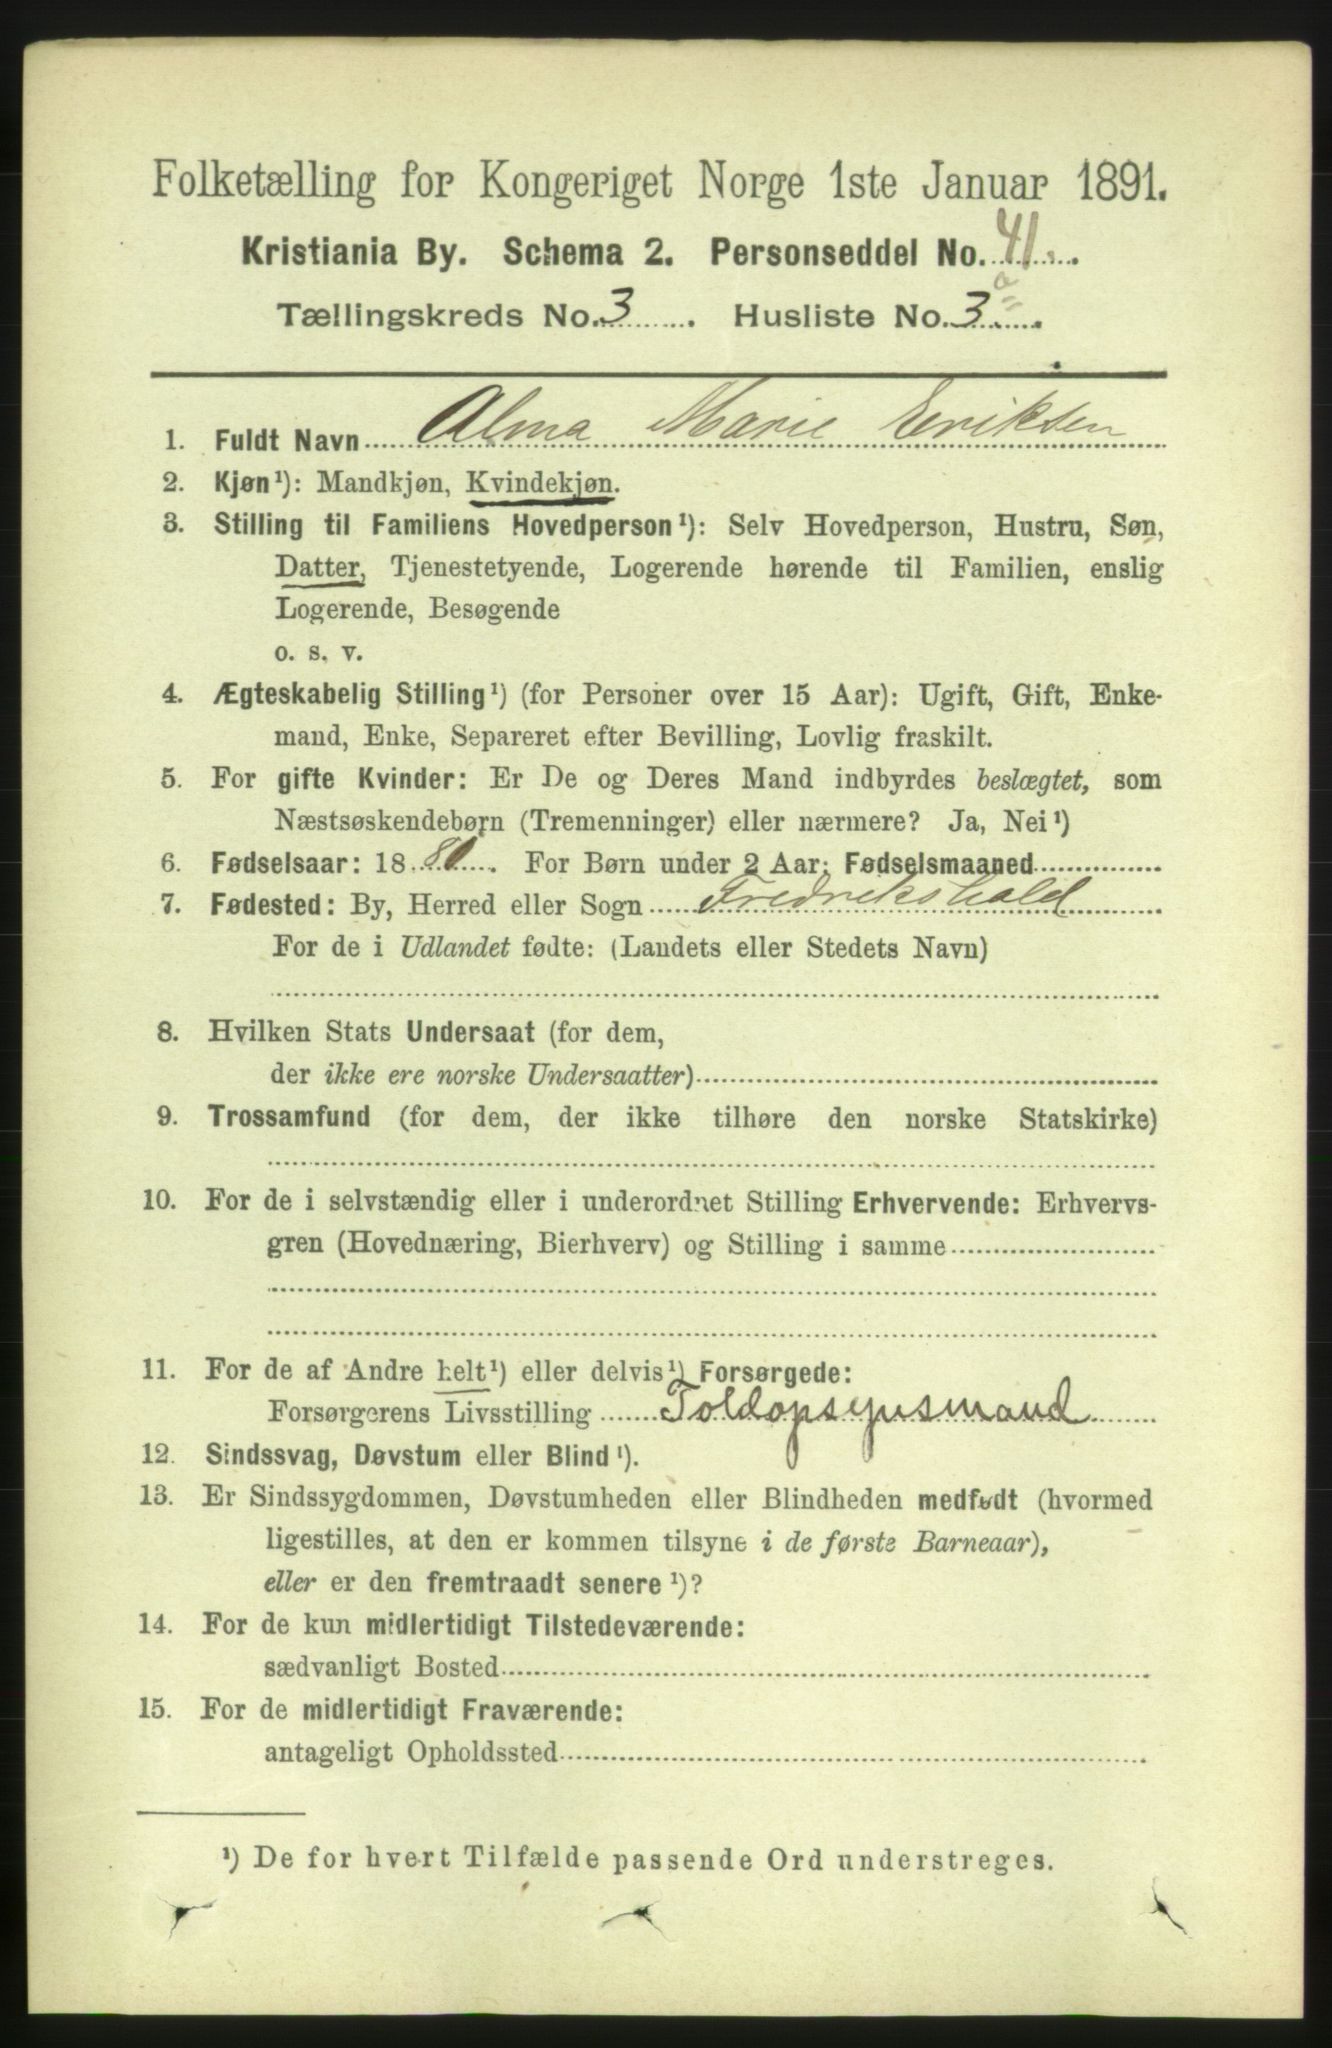 Folketælling for Kongeriget Norge 1ste Januar 1891.
Kristiania By. Schema 2. Personseddel No. 41.
Tællingskreds No. 3. Husliste No. 3a.
1. Fuldt Navn Alma Marie Eriksen
2. Kjøn¹): Mandkjøn, Kvindekjøn.
3. Stilling til Familiens Hovedperson¹): Selv Hovedperson, Hustru, Søn,
Datter, Tjenestetyende, Logerende hørende til Familien, enslig
Logerende, Besøgende
o. s. v.
4. Ægteskabelig Stilling¹) (for Personer over 15 Aar): Ugift, Gift, Enke-
mand, Enke, Separeret efter Bevilling, Lovlig fraskilt.
5. For gifte Kvinder: Er De og Deres Mand indbyrdes beslægtet, som
Næstsøskendebørn (Tremenninger) eller nærmere? Ja, Nei¹)
6. Fødselsaar: 1880. For Børn under 2 Aar: Fødselsmaaned
7. Fødested: By, Herred eller Sogn Fredrikshald
For de i Udlandet fødte: (Landets eller Stedets Navn)
8. Hvilken Stats Undersaat (for dem,
der ikke ere norske Undersaatter)
9. Trossamfund (for dem, der ikke tilhøre den norske Statskirke)
10. For de i selvstændig eller i underordnet Stilling Erhvervende: Erhvervs-
gren (Hovednæring, Bierhverv) og Stilling i samme
11. For de af Andre helt¹) eller delvis¹) Forsørgede:
Forsørgerens Livsstilling Toldopsynsmand
12. Sindssvag, Døvstum eller Blind¹).
13. Er Sindssygdommen, Døvstumheden eller Blindheden medfødt (hvormed
ligestilles, at den er kommen tilsyne i de første Barneaar),
eller er den fremtraadt senere¹)?
14. For de kun midlertidigt Tilstedeværende:
sædvanligt Bosted
15. For de midlertidigt Fraværende:
antageligt Opholdssted
¹) De for hvert Tilfælde passende Ord understreges.